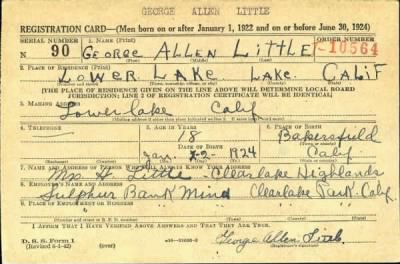 GEORGE ALLEN LITTLE
REGISTRATION CARD—(Men born on or after January 1, 1922 and on or before June 30, 1924)
SERIAL NUMBER 1. NAME (Print) ORDER NUMBER
N 90 GEORGE ALLEN LITTLE 10564
(First) (Middle) (Last)
2. PLACE OF RESIDENCE (Print)
LOWER LAKE LAKE. CALIF
[THE PLACE OF RESIDENCE GIVEN ON THE LINE ABOVE WILL DETERMINE LOCAL BOARD
JURISDICTION; LINE 2 OF REGISTRATION CERTIFICATE WILL BE IDENTICAL]
3. MAILING ADDRESS
Lowerlake Calif
[Mailing address if other than place indicated on line 2. If same insert word same]
4. TELEPHONE 5. AGE IN YEARS 6. PLACE OF BIRTH
18 Bakersfield
DATE OF BIRTH (Town or county)
Jan. 1924 Calif.
(Exchange) (Number) (Mo.) (Day) (Yr.) (State or country)
7. NAME AND ADDRESS OF PERSON WHO WILL ALWAYS KNOW YOUR ADDRESS
H. Little - Clearlake Highlands
8. EMPLOYER'S NAME AND ADDRESS
Sulpher Bank Mine Clearlake Park Calif.
9. PLACE OF EMPLOYMENT OR BUSINESS
(Number and street or R. F. D. number) (Town) (County) (State)
I AFFIRM THAT I HAVE VERIFIED ABOVE ANSWERS AND THAT THEY ARE TRUE.
D. S. S. Form 1
(Revised 6-9-42) (over) George Allen Little
(Registrant's signature)